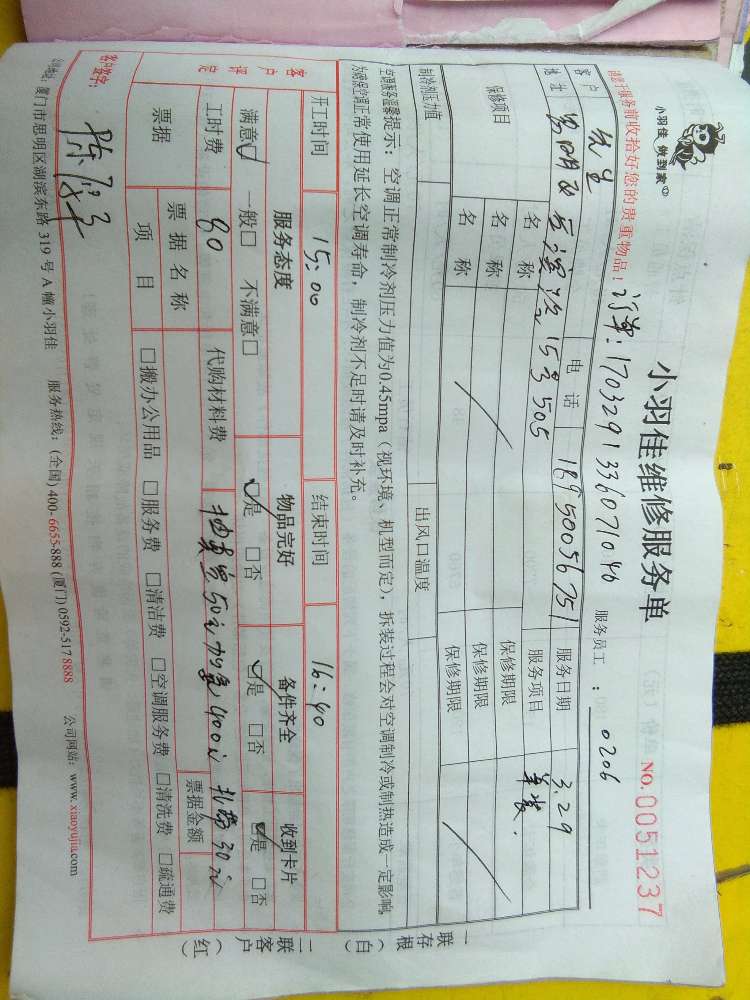 小羽佳 做到家
小羽佳维修服务单
NO.0051237
请您于服务前收拾好您的贵重物品！
订单：1703291336071046
服务员工：0206
客户 先生 电话 18950056751 服务日期 3.29
地址 后滨路15号505 服务项目 单装
保修项目 名称 保修期限
名称 保修期限
名称 保修期限
制冷剂压力值 出风口温度
空调服务温馨提示：空调正常制冷剂压力值为0.45mpa（视环境、机型而定），拆装过程会对空调制冷或制热造成一定影响，
为确保空调正常使用延长空调寿命，制冷剂不足时请及时补充。
开工时间 15:00 结束时间 16:40
客户评定 服务态度 物品完好 备件齐全 收到卡片
满意☑ 一般□ 不满意□ ☑是 □否 ☑是 □否 ☑是 □否
工时费 80 代购材料费 抽真空50元 加氟400元 扎带30元
票据 票据名称 票据金额
项目 □搬办公用品 □服务费 □清洁费 □空调服务费 □清洗费 □疏通费
客户签字：
公司地址：厦门市思明区湖滨东路319号A幢小羽佳 服务热线：(全国) 400-6655-888 (厦门) 0592-5178888 公司网站：www.xiaoyujia.com
一联存根（白）
二联客户（红）